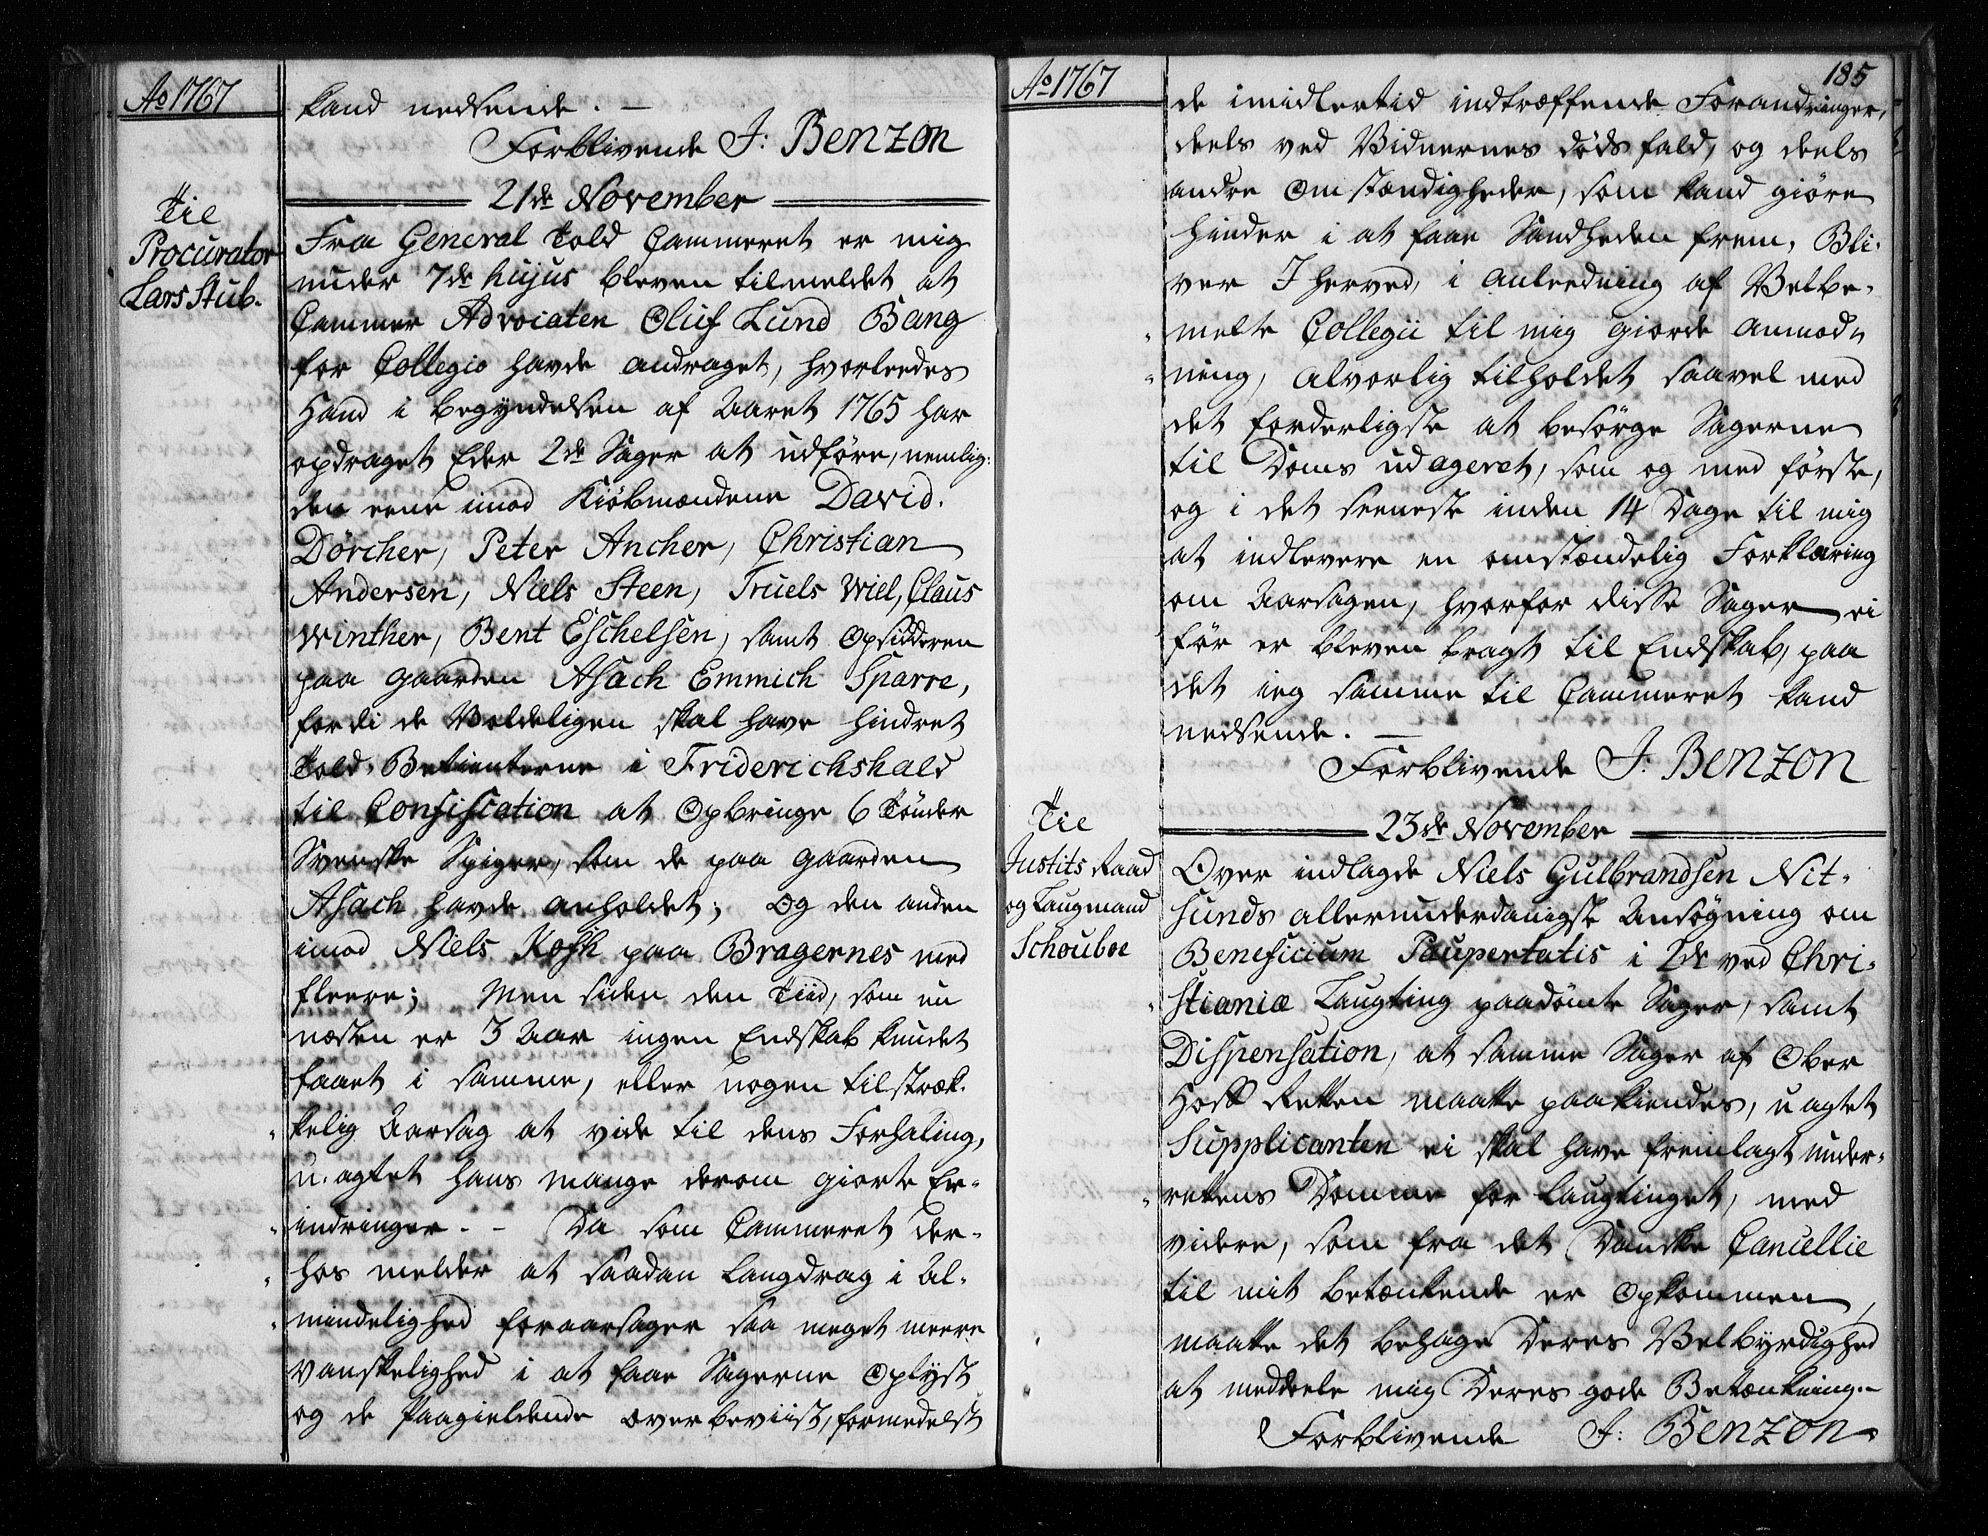 Ao 1767
kand nedsende. —
Forblivende J: Benzon
21de November
Til
Procurator
Lars Stub.
Fra General Told Cammeret er mig
under 7de hujus bleven tilmeldet at
Cammer Advocaten Oluf Lund Bang
for Collegio havde andraget, hvorleedes
Hand i begyndelsen af Aaret 1765 har
opdraget Eder 2de Sager at udføre, nemlig:
den eene imod Kiøbmændene David
Dörcher, Peter Ancher, Christian
Andersen, Niels Steen, Truels Wiel, Claus
Winther, Bent Eschelsen, samt Opsidderen
paa gaarden Asach Emmich Sparre,
fordi de Voldeligen skal have hindret
Told-Betienterne i Friderichshald
til Confiscation at Opbringe 6 Tønder
Svenske Spiger, som de paa gaarden
Asach havde anholdet; Og den anden
imod Niels Kosk paa Bragernes med
fleere; Men siden den Tiid, som nu
næsten er 3 Aar ingen Endskab kundet
faaet i samme, eller nogen tilstræk-
kelig Aarsag at vide til dens Forhaling,
u-agtet hans mange derom giorte Er-
indringer. - Da som Cammeret der-
hos melder at saadan Langdrag i Al-
mindelighed foraarsager saa meget meere
vanskelighed i at faae Sagerne Oplyst
og de Paagieldende overbeviist, formedelst
Ao 1767
185
de imidlertid indtræffende Forandringer,
deels ved Vidnernes dødsfald, og deels
andre Omstændigheder, som kand giøre
hinder i at faae Sandheden frem, Bli-
ver I herved, i Anleedning af Velbe-
melte Collegii til mig giorde Anmod-
ning, Alvorlig tilholdet saavel med
det forderligste at besørge Sagerne
til Doms udageret, som og med første,
og i det seeneste inden 14 Dage til mig
at indlevere en omstændelig Forklaring
om Aarsagen, hvorfor disse Sager ei
før er bleven bragt til Endskab, paa
det ieg samme til Cammeret kand
nedsende. —
Forblivende J. Benzon
23de November
Til
Justits Raad
og Laugmand
Schouboe
Over indlagde Niels Gulbrandsen Nit-
sunds allerunderdanigste Ansøgning om
Beneficium Paupertatis i 2de ved Chri-
stianiæ Laugting paadømte Sager, samt
Dispensation, at samme Sager af Ober
Hoff Retten maatte paakiendes, uagtet
Supplicanten ei skal have fremlagt under-
rettens Domme for Laugtinget, med
videre, som fra det Danske Cancellie
til mit Betænkende er Opkommen,
maatte det behage Deres Velbyrdighed
at meddeele mig Deres gode Betænkning.-
Forblivende J: Benzon.